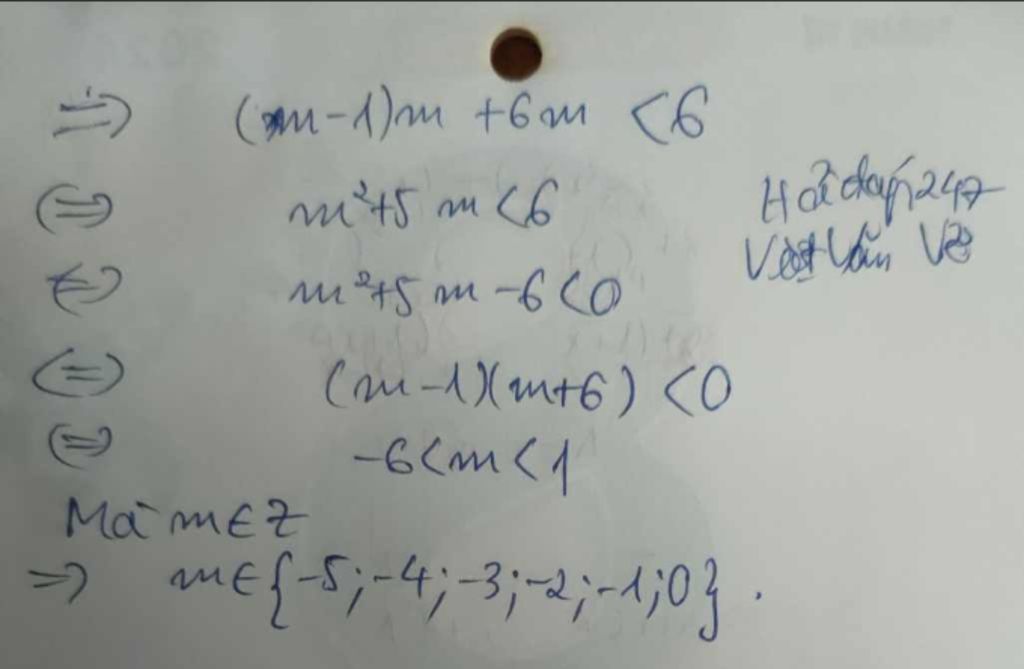 => (m-1)m +6m <6
(=) m²+5m<6
(=) m²+5m-6<0
(=) (m-1)(m+6) <0
(=) -6<m<1
Mà m∈Z
=> m∈{-5;-4;-3;-2;-1;0}.
Hỏi đáp 247
Văn Vẻ